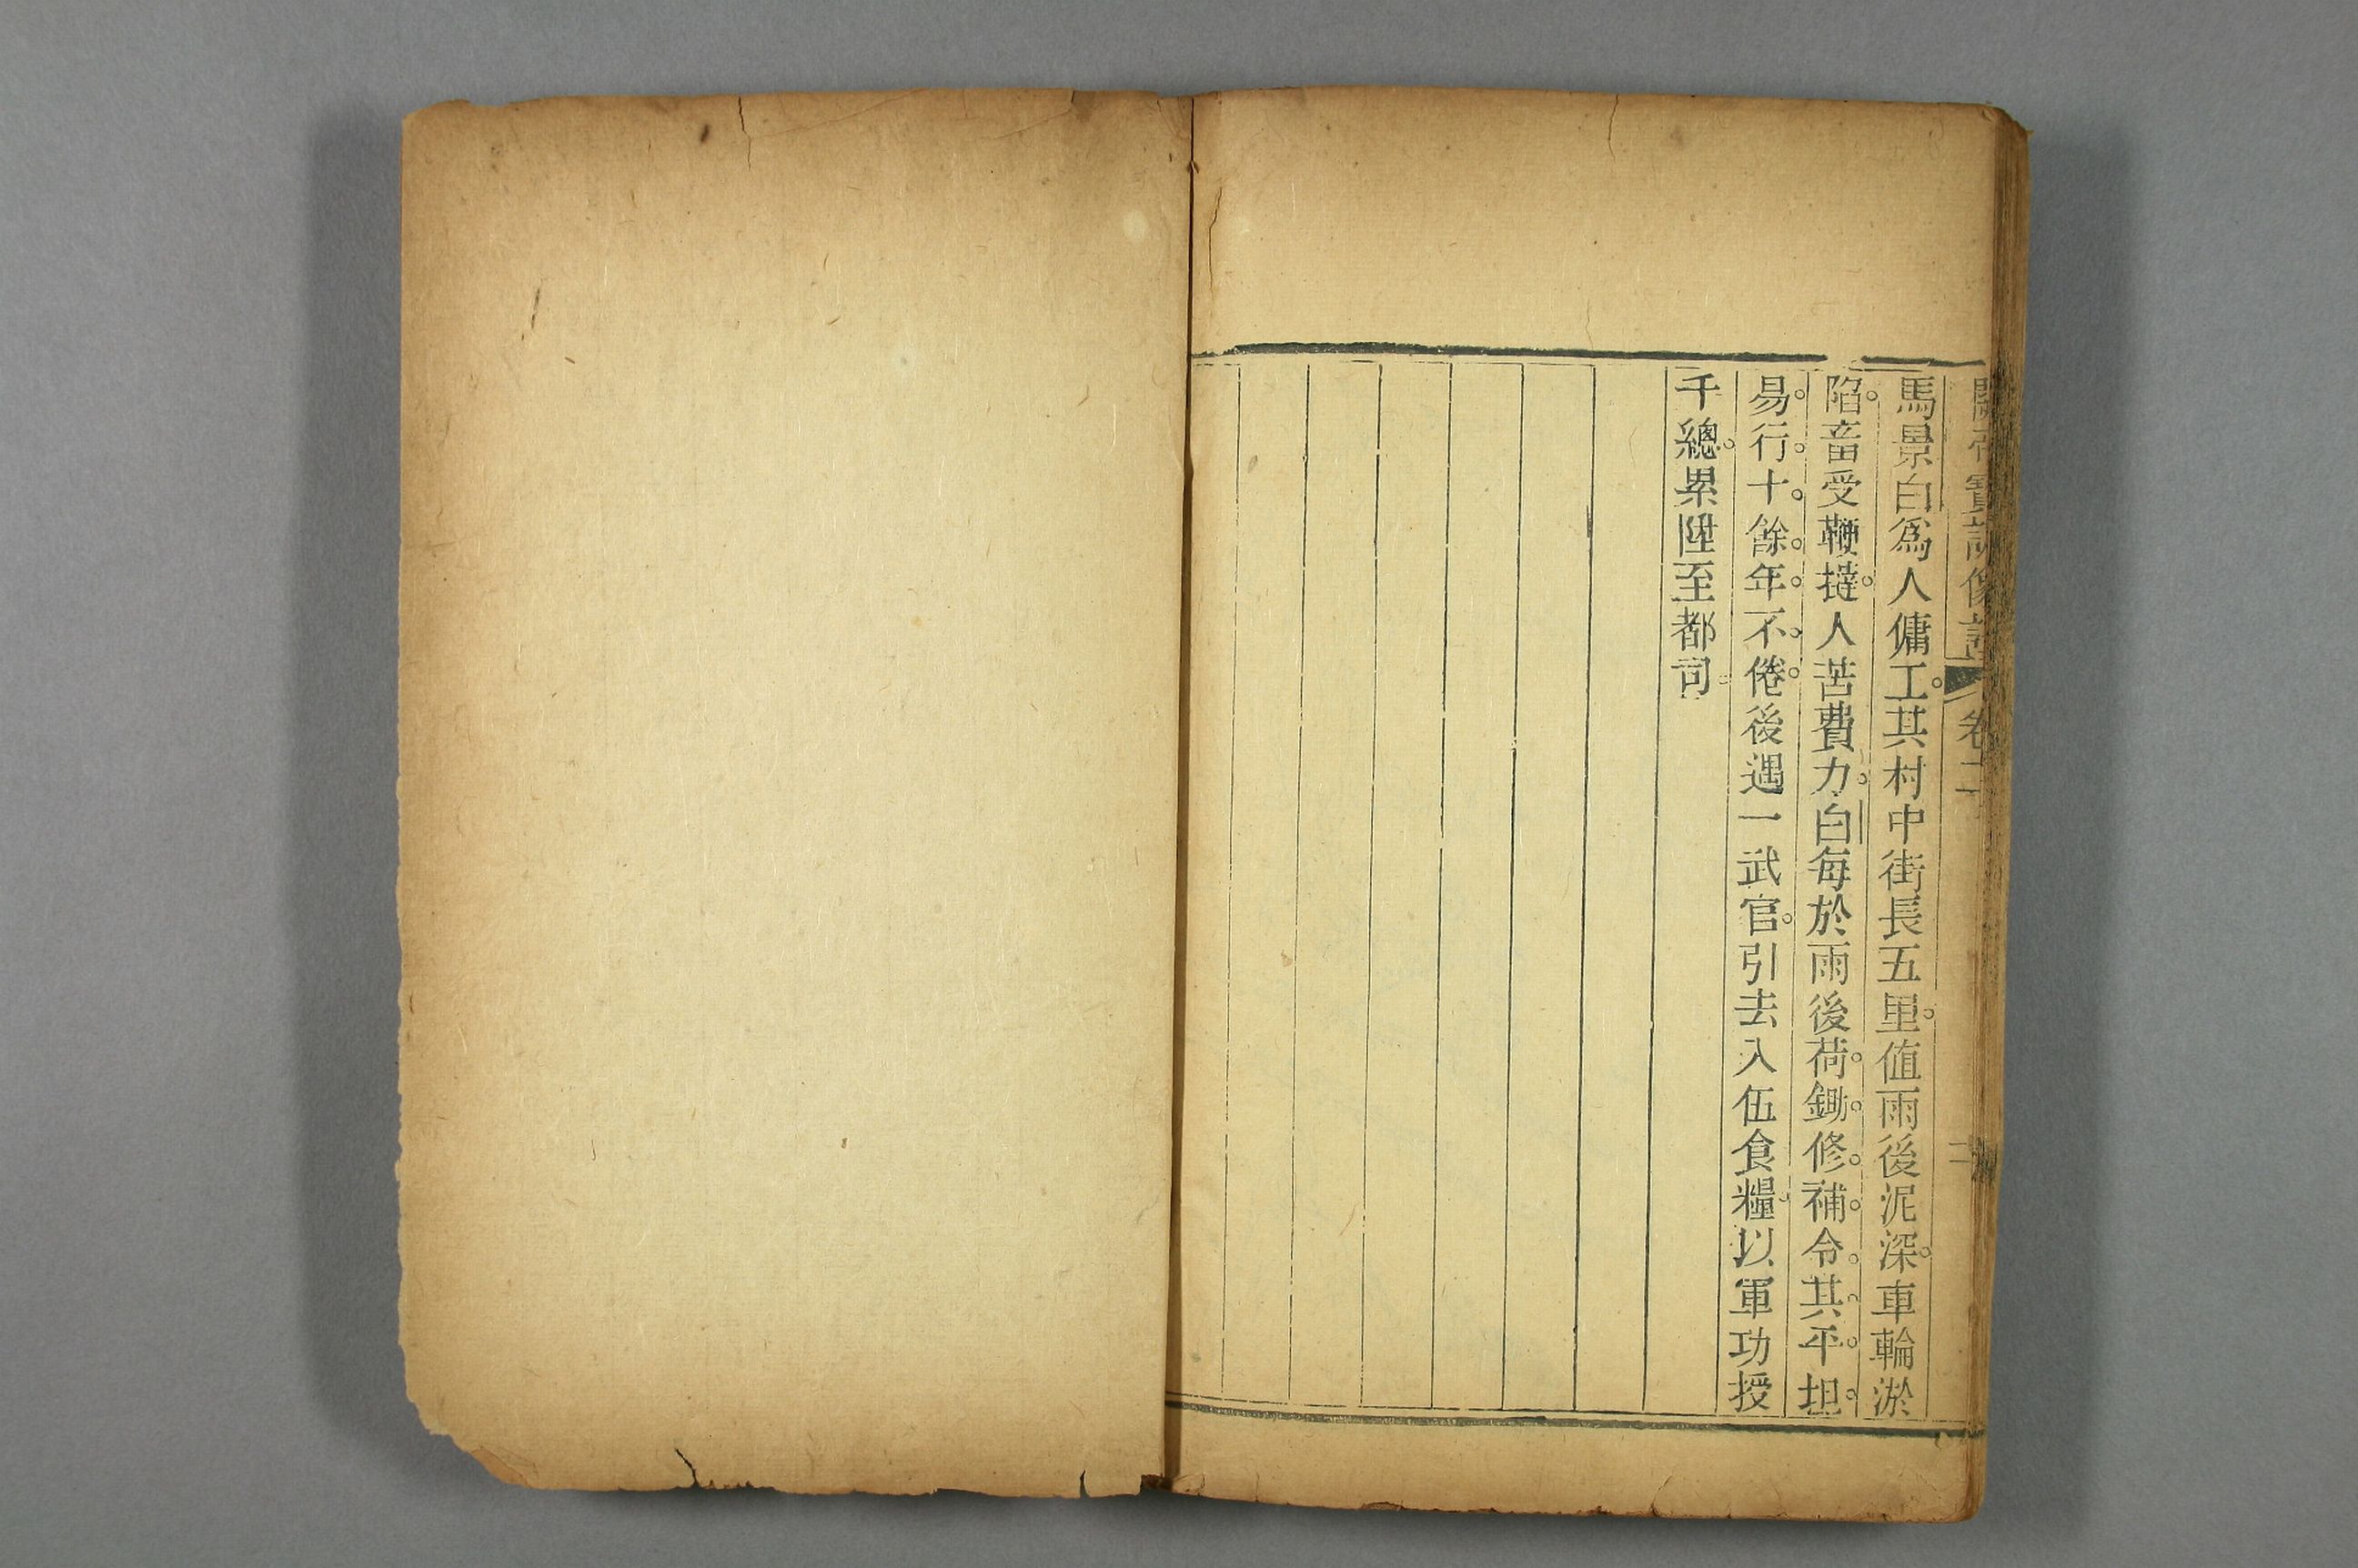 馬景白為人傭工。其村中街長五里。值雨後泥深。車輪淤
陷。畜受鞭撻。人苦費力。白每於雨後荷。鋤。修。補。令。其。平。坦。
易。行。十。餘。年。不。倦。後遇一武官。引去入伍食糧。以軍功授
千總。累陞至都司。
卷二
二